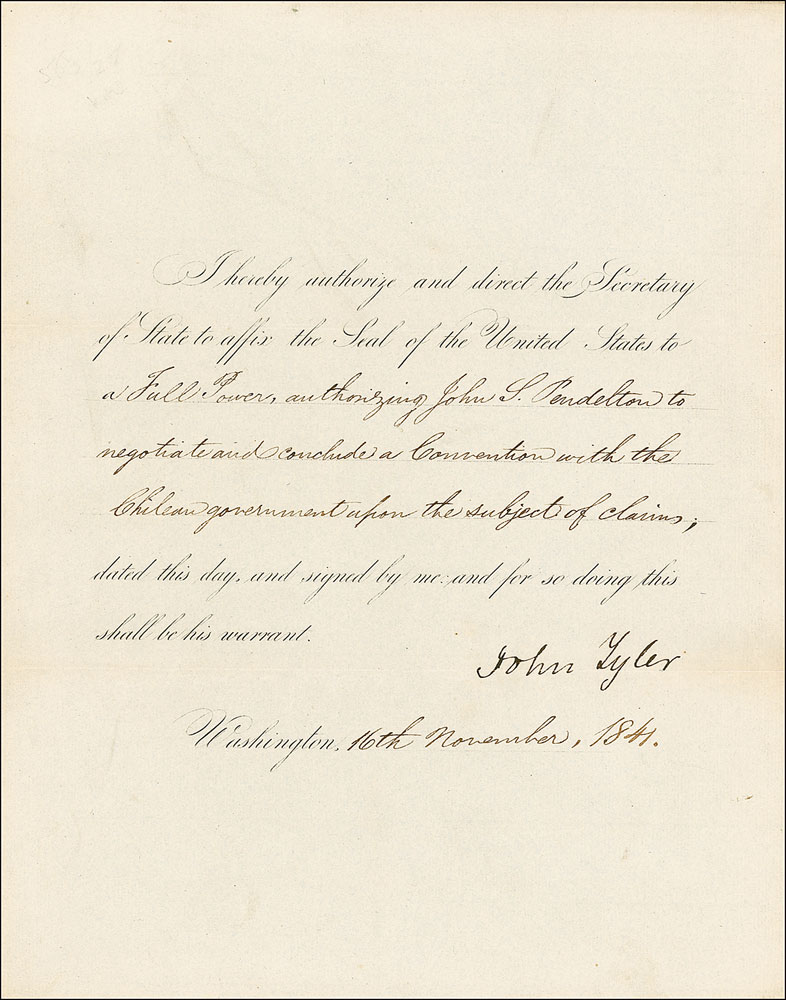 I hereby authorize and direct the Secretary
of State to affix the Seal of the United States to
a Full Power, authorizing John S. Pendelton to
negotiate and conclude a Convention with the
Chilean government upon the subject of claims;
dated this day, and signed by me: and for so doing this
shall be his warrant.
John Tyler
Washington, 16th November, 1841.